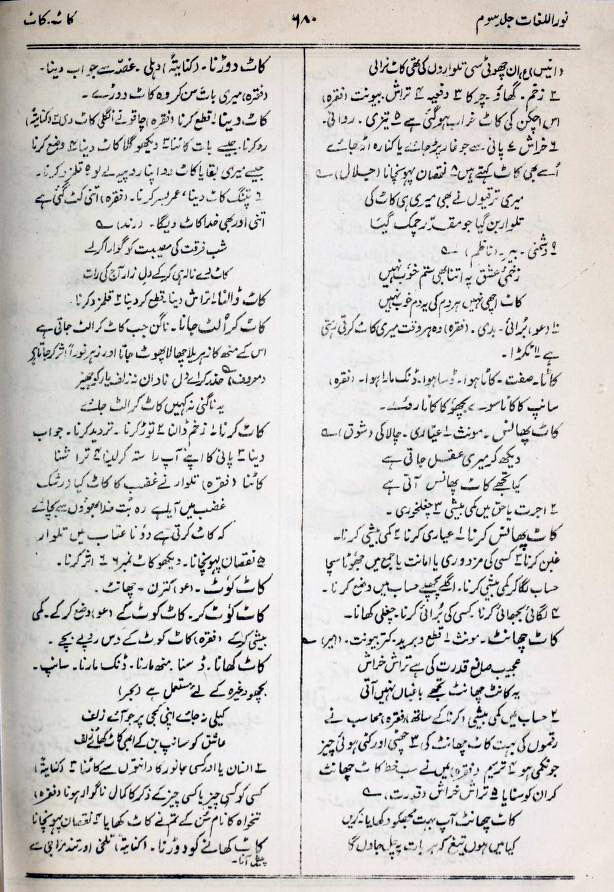 نور اللغات جلد سوم
۶۸۰
کاٹ۔ کاٹ
(انیس) ع ان چھوٹی سی تلواروں کی تھی کاٹ نرالی
۲ زخم۔ گھاؤ۔ چرکا ۳ دفعیہ ۴ تراش۔ بیونت (فقرہ)
اس اچکن کی کاٹ خراب ہو گئی ہے ۵ تیزی۔ روانی۔
۶ خراش ۷ پانی سے جو غار پڑ جائے یا کنارہ اڑ جائے
اسے بھی کاٹ کہتے ہیں ۸ نقصان پہونچانا (جلال) ؎
میری ترقیوں نے بھی میری ہی کاٹ کی
تلوار بن گیا جو مقدر چمک گیا
۹ دشمنی۔ بیر۔ (ناظم) ؎
زخمیٔ عشق پہ اتنا بھی ستم خوب نہیں
کاٹ اچھی نہیں ہر دم کی یہ دم خوب نہیں
۱۰ (عو) برائی۔ بدی۔ (فقرہ) وہ ہر وقت میری کاٹ کرتی رہتی
ہے ۱۱ ٹکڑا۔
کاٹا۔ صفت۔ کاٹا ہوا۔ ڈسا ہوا۔ ڈنک مارا ہوا۔ (فقرہ)
سانپ کا کاٹا سوئے بچھو کا کاٹا روئے۔
کاٹ پھانس۔ مونث ۱ عیاری۔ چالاکی (شوق) ؎
دیکھ کر میری عقل جاتی ہے
کیا تجھے کاٹ پھانس آتی ہے
۲ اجرت یا حق میں کمی بیشی ۳ چغلخوری۔
کاٹ پھانس کرنا۔ ۱ عیاری کرنا ۲ کمی بیشی کرنا۔
غبن کرنا ۳ کسی کی مزدوری یا امانت یا جمع میں جھوٹا سچا
حساب لگا کر کمی بیشی کرنا۔ اگلے پچھلے حساب میں وضع کرنا۔
۴ لگائی بجھائی کرنا کسی کی برائی کرنا۔ چغلی کھانا۔
کاٹ چھانٹ۔ مونث۔ ۱ قطع و برید۔ کتر بیونت۔ ؎
عجیب صانع قدرت کی ہے تراش خراش
یہ کاٹ چھانٹ تجھے باغباں نہیں آتی
۲ حساب میں کمی بیشی (کرنا کے ساتھ) (فقرہ) محاسب نے
رقموں کی بہت کاٹ چھانٹ کی ۳ چھٹی اور کٹی ہوئی چیز
جو نکمی ہو ۴ ترمیم (فقرہ) میں نے سب خط کاٹ چھانٹ
کر ان کو سنایا ۵ تراش خراش (قدرت) ؎
کاٹ چھانٹ آپ بہت مجھکو دکھایا نہ کریں
کیا میں ہوں تیغ کہ ہر بات پہ چل جاؤں گا
کاٹ دوڑنا۔ (کنایتہً) دہلی غصہ سے جواب دینا۔
(فقرہ) میری بات سن کر وہ کاٹ دوڑے۔
کاٹ دینا۔ ۱ قطع کرنا (فقرہ) چاقو نے انگلی کاٹ دی ۲ (کنایتہً)
رد کرنا۔ جیسے بات کاٹنا ۳ دیکھو گلا کاٹ دینا ۴ وضع کرنا
جیسے میری بقایا کاٹ دو اپنا روپیہ لے لو ۵ قلمزد کرنا۔
۶ پتنگ کاٹ دینا ۷ عمر بسر کرنا۔ (فقرہ) اتنی کٹ گئی ہے
اتنی اور بھی خدا کاٹ دیگا۔ (رند) ؎
شب فرقت کی مصیبت کو گوارا کرلے
کاٹ دے نالہ ہی کر کے دل زار آج کی رات
کاٹ ڈالنا۔ ۱ تراش دینا۔ قطع کر دینا ۲ قلمزد کرنا۔
کاٹ کر الٹ جانا۔ ناگن جب کاٹ کر الٹ جاتی ہے
اس کے منھ کا زہریلا چھالا پھوٹ جاتا اور زہر فوراً اثر کر جاتا ہے
(معروف) ؎ حذر کر اے دل ناداں نہ زلف یار کو چھیڑ
یہ ناگنی نہ کہیں کاٹ کر الٹ جائے
کاٹ کرنا۔ ۱ زخم ڈالنا ۲ توڑ کرنا۔ تردید کرنا۔ جواب
دینا ۳ پانی کا اپنے آپ راستہ کر لینا ۴ تراشنا
کاٹنا (فقرہ) تلوار نے غضب کا کاٹ کیا (رشک)
غضب میں آیا ہے وہ بت خدا بچائے
کہ کاٹ کرتی ہے دونا عتاب میں تلوار
۵ نقصان پہونچانا۔ دیکھو کاٹ نمبر ۸ ۶ اثر کرنا۔
کاٹ کوٹ۔ (عو) کترن۔ چھانٹ۔
کاٹ کوٹ کر۔ کاٹ کوٹ کے (عو) وضع کر کے۔ کمی
بیشی کر کے (فقرہ) کاٹ کوٹ کے دس روپے بچے۔
کاٹ کھانا۔ ڈسنا۔ منھ مارنا۔ ڈنک مارنا۔ سانپ۔
بچھو وغیرہ کے لئے مستعمل ہے (بحر)
کیلی نہ جائے اپنی کجی پر جو آئے زلف
عاشق کو سانپ بن کے ابھی کاٹ کھائے زلف
۲ انسان یا اور کسی جانور کا دانتوں سے کاٹنا ۳ (کنایتہً)
کسی کو کسی چیز یا کسی چیز کے ذکر کا کمال ناگوار ہونا (فقرہ)
تنخواہ کا نام سن کے تم نے کاٹ کھایا ۴ نقصان پہونچانا
کاٹ کھانے کو دوڑنا۔ (کنایتہً) تلخی اور تند مزاجی سے
پیش آنا۔